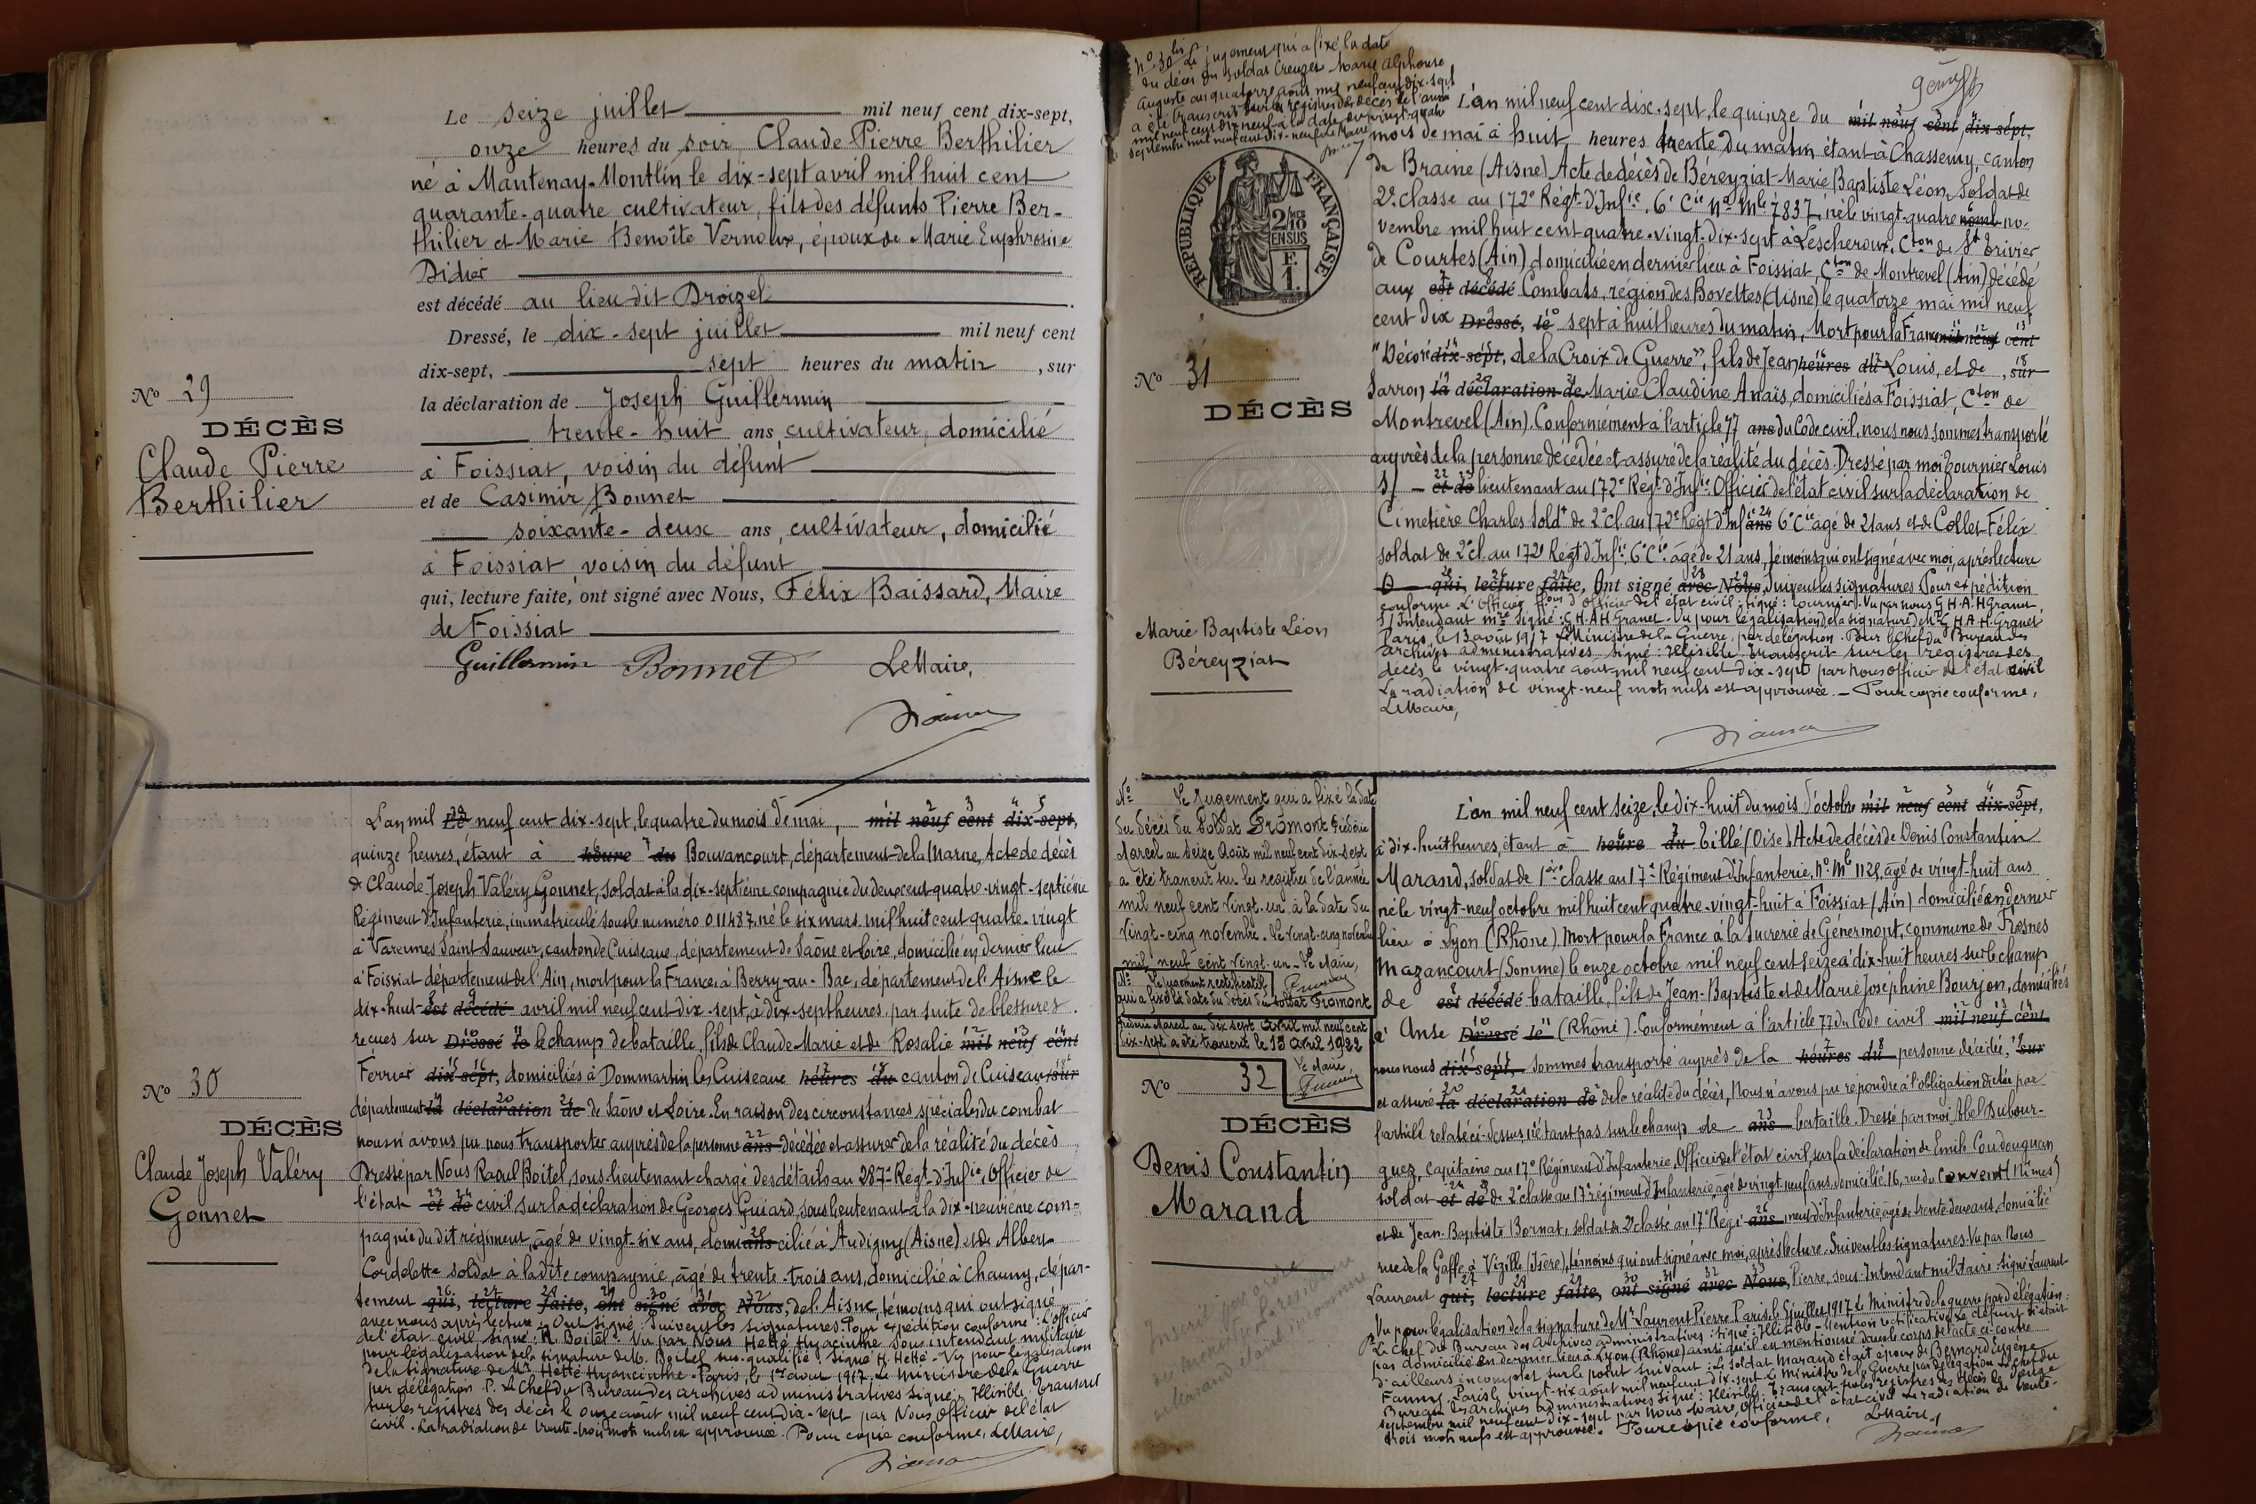 Le seize juillet mil neuf cent dix-sept,
onze heures du soir Claude Pierre Berthilier
né à Mantenay-Montlin le dix-sept avril mil huit cent
quarante-quatre cultivateur, fils des défunts Pierre Ber-
thilier et Marie Benoîte Vernoux, époux de Marie Euphrosine
Didier
est décédé au lieu dit Droizel
Dressé, le dix-sept juillet mil neuf cent
dix-sept, sept heures du matin, sur
la déclaration de Joseph Guillermin
trente-huit ans, cultivateur, domicilié
à Foissiat, voisin du défunt
et de Casimir Bonnet
soixante-deux ans, cultivateur, domicilié
à Foissiat, voisin du défunt
qui, lecture faite, ont signé avec Nous, Félix Baissard, Maire
de Foissiat
Guillermin Bonnet Le Maire,
No 29
DÉCÈS
Claude Pierre
Berthilier
L'an mil Le neuf cent dix-sept, le quatre du mois de mai, mil neuf cent dix-sept,
quinze heures, étant à heure du Bouvancourt, département de la Marne, Acte de décès
de Claude Joseph Valéry Gonnet, soldat à la dix-septième compagnie du deux cent quatre-vingt-septième
Régiment d'Infanterie, immatriculé sous le numéro 011487, né le six mars mil huit cent quatre-vingt
à Varennes Saint Sauveur, canton de Cuiseaux, département de Saône et Loire, domicilié en dernier lieu
à Foissiat département de l'Ain, mort pour la France à Berry-au-Bac, département de l'Aisne le
dix-huit est décédé avril mil neuf cent dix-sept, à dix-sept heures, par suite de blessures
reçues sur Dressé le le champ de bataille, fils de Claude Marie et de Rosalie mil neuf cent
Ferrier dix-sept, domiciliés à Dommartin les Cuiseaux heures du canton de Cuiseaux sur
département la déclaration de de Saône et Loire. En raison des circonstances spéciales du combat
nous n'avons pu nous transporter auprès de la personne ans décédée et assurer de la réalité du décès
Dressé par Nous Raoul Boitel, sous-lieutenant chargé des détails au 287e Régt d'Infie, Officier de
l'état et de civil sur la déclaration de Georges Guiard, sous lieutenant à la dix-neuvième com-
pagnie du dit régiment, âgé de vingt-six ans, domi ans cilié à Audigny (Aisne) et de Albert
Cordelette soldat à la dite compagnie, âgé de trente-trois ans, domicilié à Chauny, dépar-
tement qui, lecture faite, ont signé avec Nous, de l'Aisne, témoins qui ont signé
avec nous après lecture. Ont signé: Suivent les signatures. Pour expédition conforme: L'officier
de l'état civil signé: R. Boitel. Vu par Nous Hetté Hyacinthe Sous intendant militaire
pour légalisation de la signature de M. Boitel sus-qualifié. Signé H. Hetté - Vu pour légalisation
de la signature de Mr Hetté Hyacinthe. Paris, le 1er août 1917. Le Ministre de la Guerre
par délégation P. Le Chef du Bureau des archives administratives signé: Illisible. Transcrit
sur les registres des décès le onze août mil neuf cent dix-sept par Nous Officier de l'état
civil. La radiation de trente-trois mots nuls est approuvée. Pour copie conforme, Le Maire,
No 30
DÉCÈS
Claude Joseph Valéry
Gonnet
No 30 bis Le jugement qui a fixé la date
du décès du soldat Creuzet Marie Alphonse
Auguste au quatorze août mil neuf cent dix-sept
a été transcrit sur les registres des décès de l'année
mil neuf cent dix neuf à la date du vingt-quatre
septembre mil neuf cent dix-neuf. Le Maire
RÉPUBLIQUE FRANÇAISE
2/10
EN SUS
F.
1.
L'an mil neuf cent dix-sept, le quinze du mil neuf cent dix-sept,
mois de mai à huit heures trente du matin étant à Chassemy, canton
de Braine (Aisne) Acte de décès de Béreyziat Marie Baptiste Léon, Soldat de
2e classe au 172e Régt d'Infie, 6e Cie No Mle 7837, né le vingt-quatre no-
vembre mil huit cent quatre-vingt-dix-sept à Lescheroux, Cton de St Trivier
de Courtes (Ain) domicilié en dernier lieu à Foissiat, Cton de Montrevel (Ain) décédé
aux est décédé Combats, région des Bovettes (Aisne) le quatorze mai mil neuf
cent dix Dressé, le sept à huit heures du matin, Mort pour la France mil neuf cent
"Décoré dix-sept, de la Croix de Guerre", fils de Jean heures du Louis, et de , sur
Sarron la déclaration de Marie Claudine Anaïs, domiciliés à Foissiat, Cton de
Montrevel (Ain). Conformément à l'article 77 ans du Code civil, nous nous sommes transporté
auprès de la personne décédée et assuré de la réalité du décès. Dressé par moi Tournier Louis
S/ - et de lieutenant au 172e Régt d'Infie Officier de l'état civil sur la déclaration de
Cimetière Charles Soldt de 2e cl. au 172e Régt d'Inf ans 6e Cie âgé de 21 ans et de Collet Félix
soldat de 2e cl. au 172e Régt d'Infie 6e Cie âgé de 21 ans, témoins qui ont signé avec moi, après lecture
qui, lecture faite, Ont signé avec Nous, Suivent les signatures Pour expédition
conforme L'officier d'officier de l'état civil signé: Tournier. Vu par nous G.H.A.H Granet,
S/Intendant mre signé: G.H.A.H Granet. Vu pour légalisation de la signature de Mr G.H.A.H. Granet
Paris, le 13 août 1917 Le Ministre de la Guerre, par délégation. Pour le Chef du Bureau des
archives administratives signé: Illisible. Transcrit sur les registres des
décès le vingt-quatre août mil neuf cent dix-sept par nous officier de l'état civil
La radiation de vingt-neuf mots nuls est approuvée. - Pour copie conforme,
Le Maire,
No 31
DÉCÈS
Marie Baptiste Léon
Béreyziat
No Le Jugement qui a fixé la date
du décès du Soldat Frômont Frédéric
Marcel au seize Août mil neuf cent dix-sept
a été transcrit sur les registres de l'année
mil neuf cent vingt-un à la date du
vingt-cinq novembre. Le vingt-cinq novembre
mil neuf cent vingt-un - Le Maire,
No Le jugement rectificatif
qui a fixé la date du décès du soldat Fromont
Frédéric Marcel au dix sept Avril mil neuf cent
dix-sept a été transcrit le 15 avril 1922
Le Maire
No 32
DÉCÈS
Denis Constantin
Marand
L'an mil neuf cent seize, le dix-huit du mois d'octobre mil neuf cent dix-sept,
à dix-huit heures, étant à heure du Tillé (Oise) Acte de décès de Denis Constantin
Marand, soldat de 1ère classe au 17e Régiment d'Infanterie, No Mle 1121, âgé de vingt-huit ans
né le vingt-neuf octobre mil huit cent quatre-vingt-huit à Foissiat (Ain) domicilié en dernier
lieu à Lyon (Rhône) Mort pour la France à la sucrerie de Génermont, commune de Fresnes
Mazancourt (Somme) le onze octobre mil neuf cent seize à dix-huit heures sur le champ
de est décédé bataille, fils de Jean-Baptiste et de Marie Joséphine Bourjon, domiciliés
à Anse Dressé le (Rhône). Conformément à l'article 77 du Code civil mil neuf cent
nous nous dix-sept, sommes transporté auprès de la heures du personne décédée, sur
et assuré la déclaration de de la réalité du décès, Nous n'avons pu répondre à l'obligation dictée par
l'article relaté ci-dessus, n'étant pas sur le champ de ans bataille. Dressé par moi Abel Dubour-
guez, capitaine au 17e Régiment d'Infanterie, Officier de l'état civil, sur la déclaration de Emile Coudougnan
soldat et de de 2e classe au 17e régiment d'Infanterie, âgé de vingt-neuf ans, domicilié 16, rue du Couvent (Nîmes)
et de Jean-Baptiste Bornat, soldat de 2e classe au 17e Régi ans ment d'Infanterie, âgé de trente deux ans, domicilié
rue de la Gaffe, à Vizille (Isère), témoins qui ont signé avec moi, après lecture. Suivent les signatures. Vu par Nous
Laurent qui, lecture faite, ont signé avec Nous, Pierre, sous-Intendant militaire signé Laurent
Vu pour légalisation de la signature de Mr Laurent Pierre. Paris, le juillet 1917 Le Ministre de la guerre par délégation:
Le Chef du Bureau des Archives administratives: signé: Illisible - Mention rectificative Le défunt n'était
pas domicilié en dernier lieu à Lyon (Rhône) ainsi qu'il est mentionné dans le corps de l'acte ci-contre
d'ailleurs incomplet sur le point suivant: Le soldat Marand était époux de Bernard Eugénie
Fanny. Paris le vingt-six août mil neuf cent dix-sept Le Ministre de la Guerre par délégation Le chef du
Bureau des archives administratives signé: Illisible. Transcrit sur les registres des décès le douze
septembre mil neuf cent dix-sept par nous Maire, Officier de l'état civil La radiation de trente-
trois mots nuls est approuvée. Pour copie conforme, Le Maire,